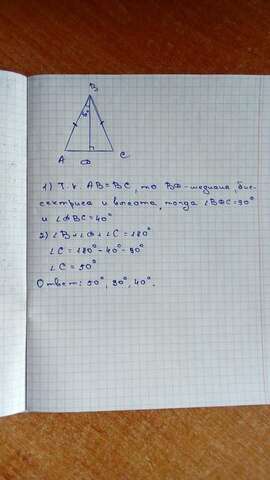 B
40°
A
Ф
C
1) Т.к. AB = BC, то BФ-медиана, бис-
сектриса и высота, тогда ∠BФC=90°
и ∠ФBC=40°
2) ∠B+∠Ф+∠C=180°
∠C=180°-40°-90°
∠C=50°
Ответ: 50°, 90°, 40°.